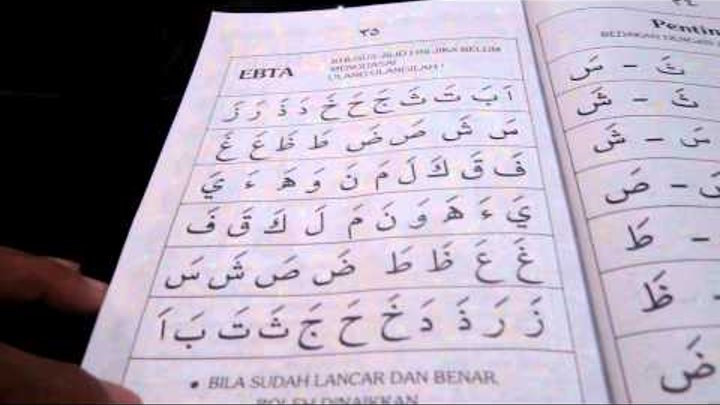 ٣٥
EBTA
KHUSUS JILID I INI, JIKA BELUM
MENGUASAI
ULANG-ULANGILAH !
اَ بَ تَ ثَ جَ حَ خَ دَ ذَ رَ زَ
سَ شَ صَ ضَ طَ ظَ عَ غَ
فَ قَ كَ لَ مَ نَ وَ هَ ءَ يَ
يَ ءَ هَ وَ نَ مَ لَ كَ قَ فَ
غَ عَ ظَ طَ ضَ صَ شَ سَ
زَ رَ ذَ دَ خَ حَ جَ ثَ تَ بَ اَ
• BILA SUDAH LANCAR DAN BENAR,
BOLEH DINAIKKAN
Pentin
BEDAKAN DENGAN
ثَ - سَ
ثَ - شَ
سَ - شَ
- صَ
- طَ
- ظَ
ضَ